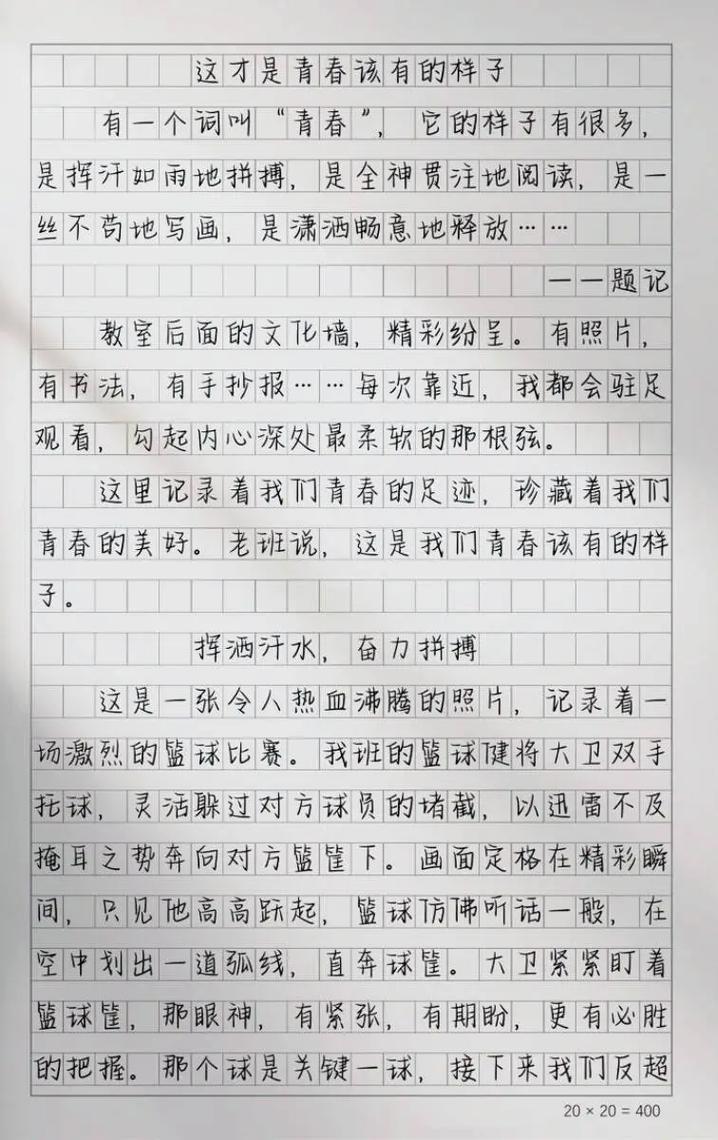 这才是青春该有的样子
有一个词叫“青春”，它的样子有很多，
是挥汗如雨地拼搏，是全神贯注地阅读，是一
丝不苟地写画，是潇洒畅意地释放……
——题记
教室后面的文化墙，精彩纷呈。有照片，
有书法，有手抄报……每次靠近，我都会驻足
观看，勾起内心深处最柔软的那根弦。
这里记录着我们青春的足迹，珍藏着我们
青春的美好。老班说，这是我们青春该有的样
子。
挥洒汗水，奋力拼搏
这是一张令人热血沸腾的照片，记录着一
场激烈的篮球比赛。我班的篮球健将大卫双手
托球，灵活躲过对方球员的堵截，以迅雷不及
掩耳之势奔向对方篮筐下。画面定格在精彩瞬
间，只见他高高跃起，篮球仿佛听话一般，在
空中划出一道弧线，直奔球筐。大卫紧紧盯着
篮球筐，那眼神，有紧张，有期盼，更有必胜
的把握。那个球是关键一球，接下来我们反超
20 × 20 = 400